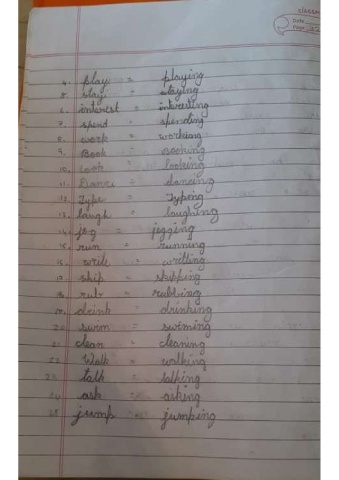 4. play = playing
5. stay - staying
6. interest = interesting
7. spend - spending
8. work = working
9. Book - Booking
10. cook - cooking
11. Dance - dancing
12. Type = Typing
13. laugh - laughing
14. jog = jogging
15. run = running
16. write - writting
17. skip = skipping
rub - rubbing
drink - drinking
20. swim = swiming
21. clean - cleaning
22. Walk = walking
23. talk = talking
24. ask = asking
25. jump = jumping